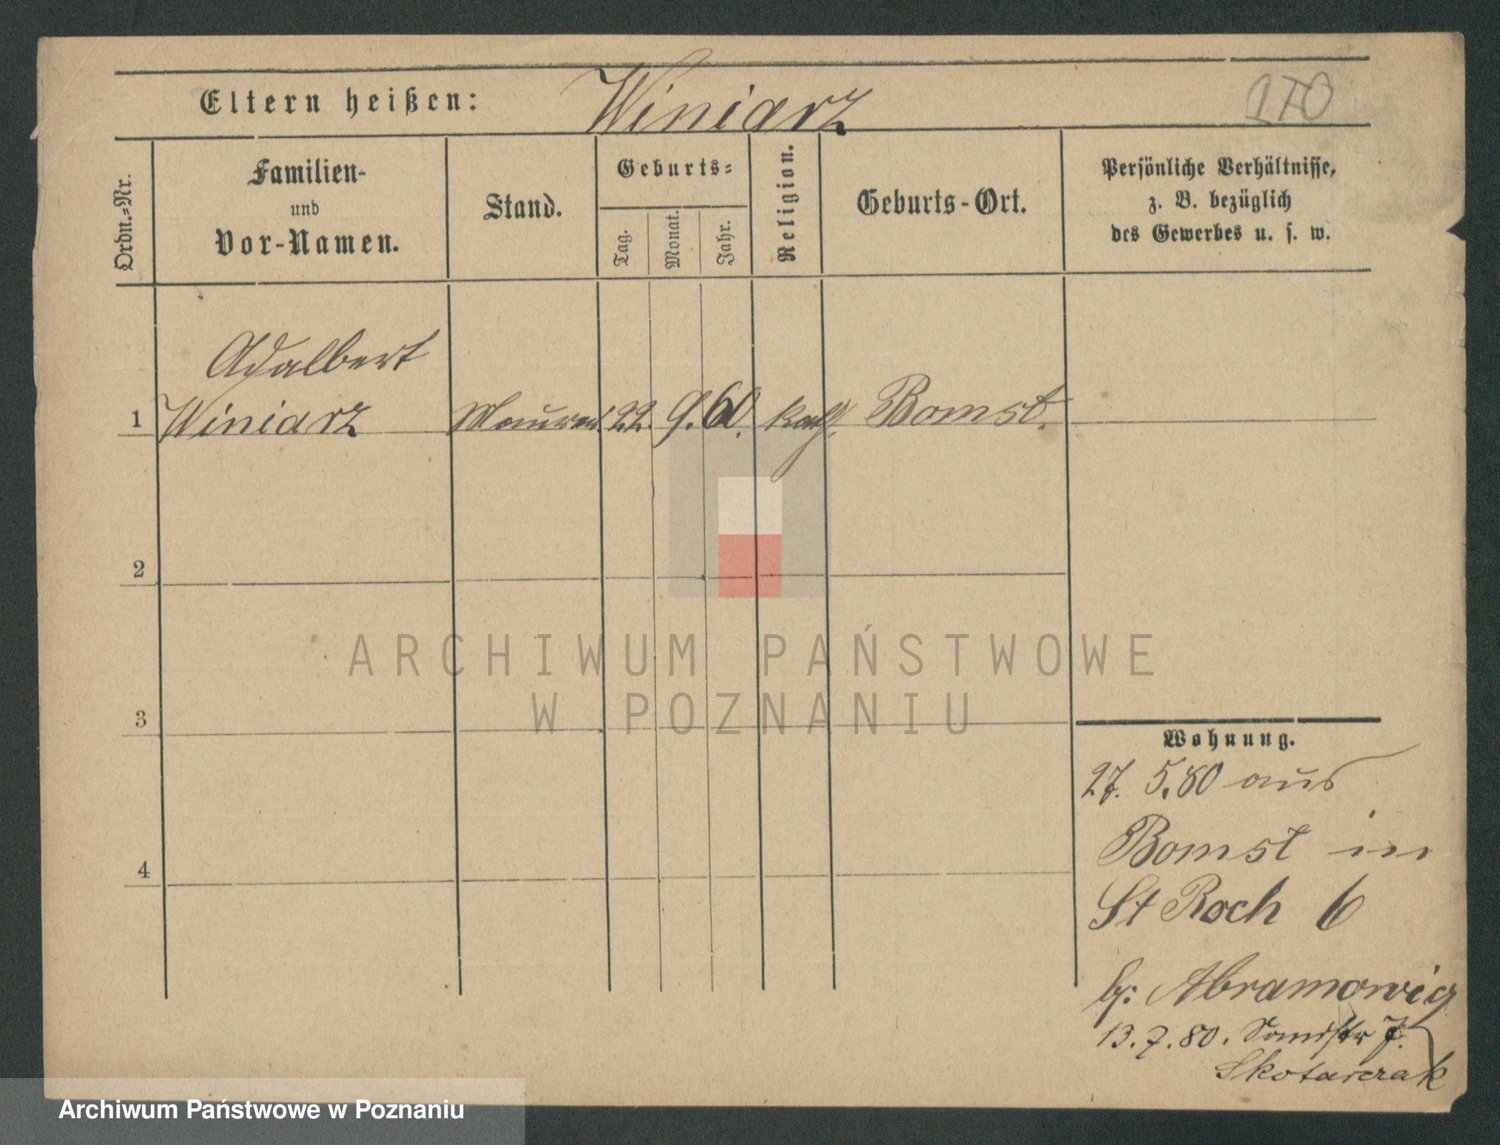 Eltern heißen: Winiarz
170
Ordn.-Nr.
Familien-
und
Vor-Namen.
Stand.
Geburts-
Tag.
Monat.
Jahr.
Religion.
Geburts-Ort.
Persönliche Verhältnisse,
z. B. bezüglich
des Gewerbes u. s. w.
Adalbert
1 Winiarz Maurer 22. 9. 60. kath. Bomst.
2
3
4
ARCHIWUM PAŃSTWOWE
W POZNANIU
Wohnung.
27. 5. 80 aus
Bomst in
St Roch 6
b.
13. 7. 80. Sandstr 7.
Skotarczak
Archiwum Państwowe w Poznaniu